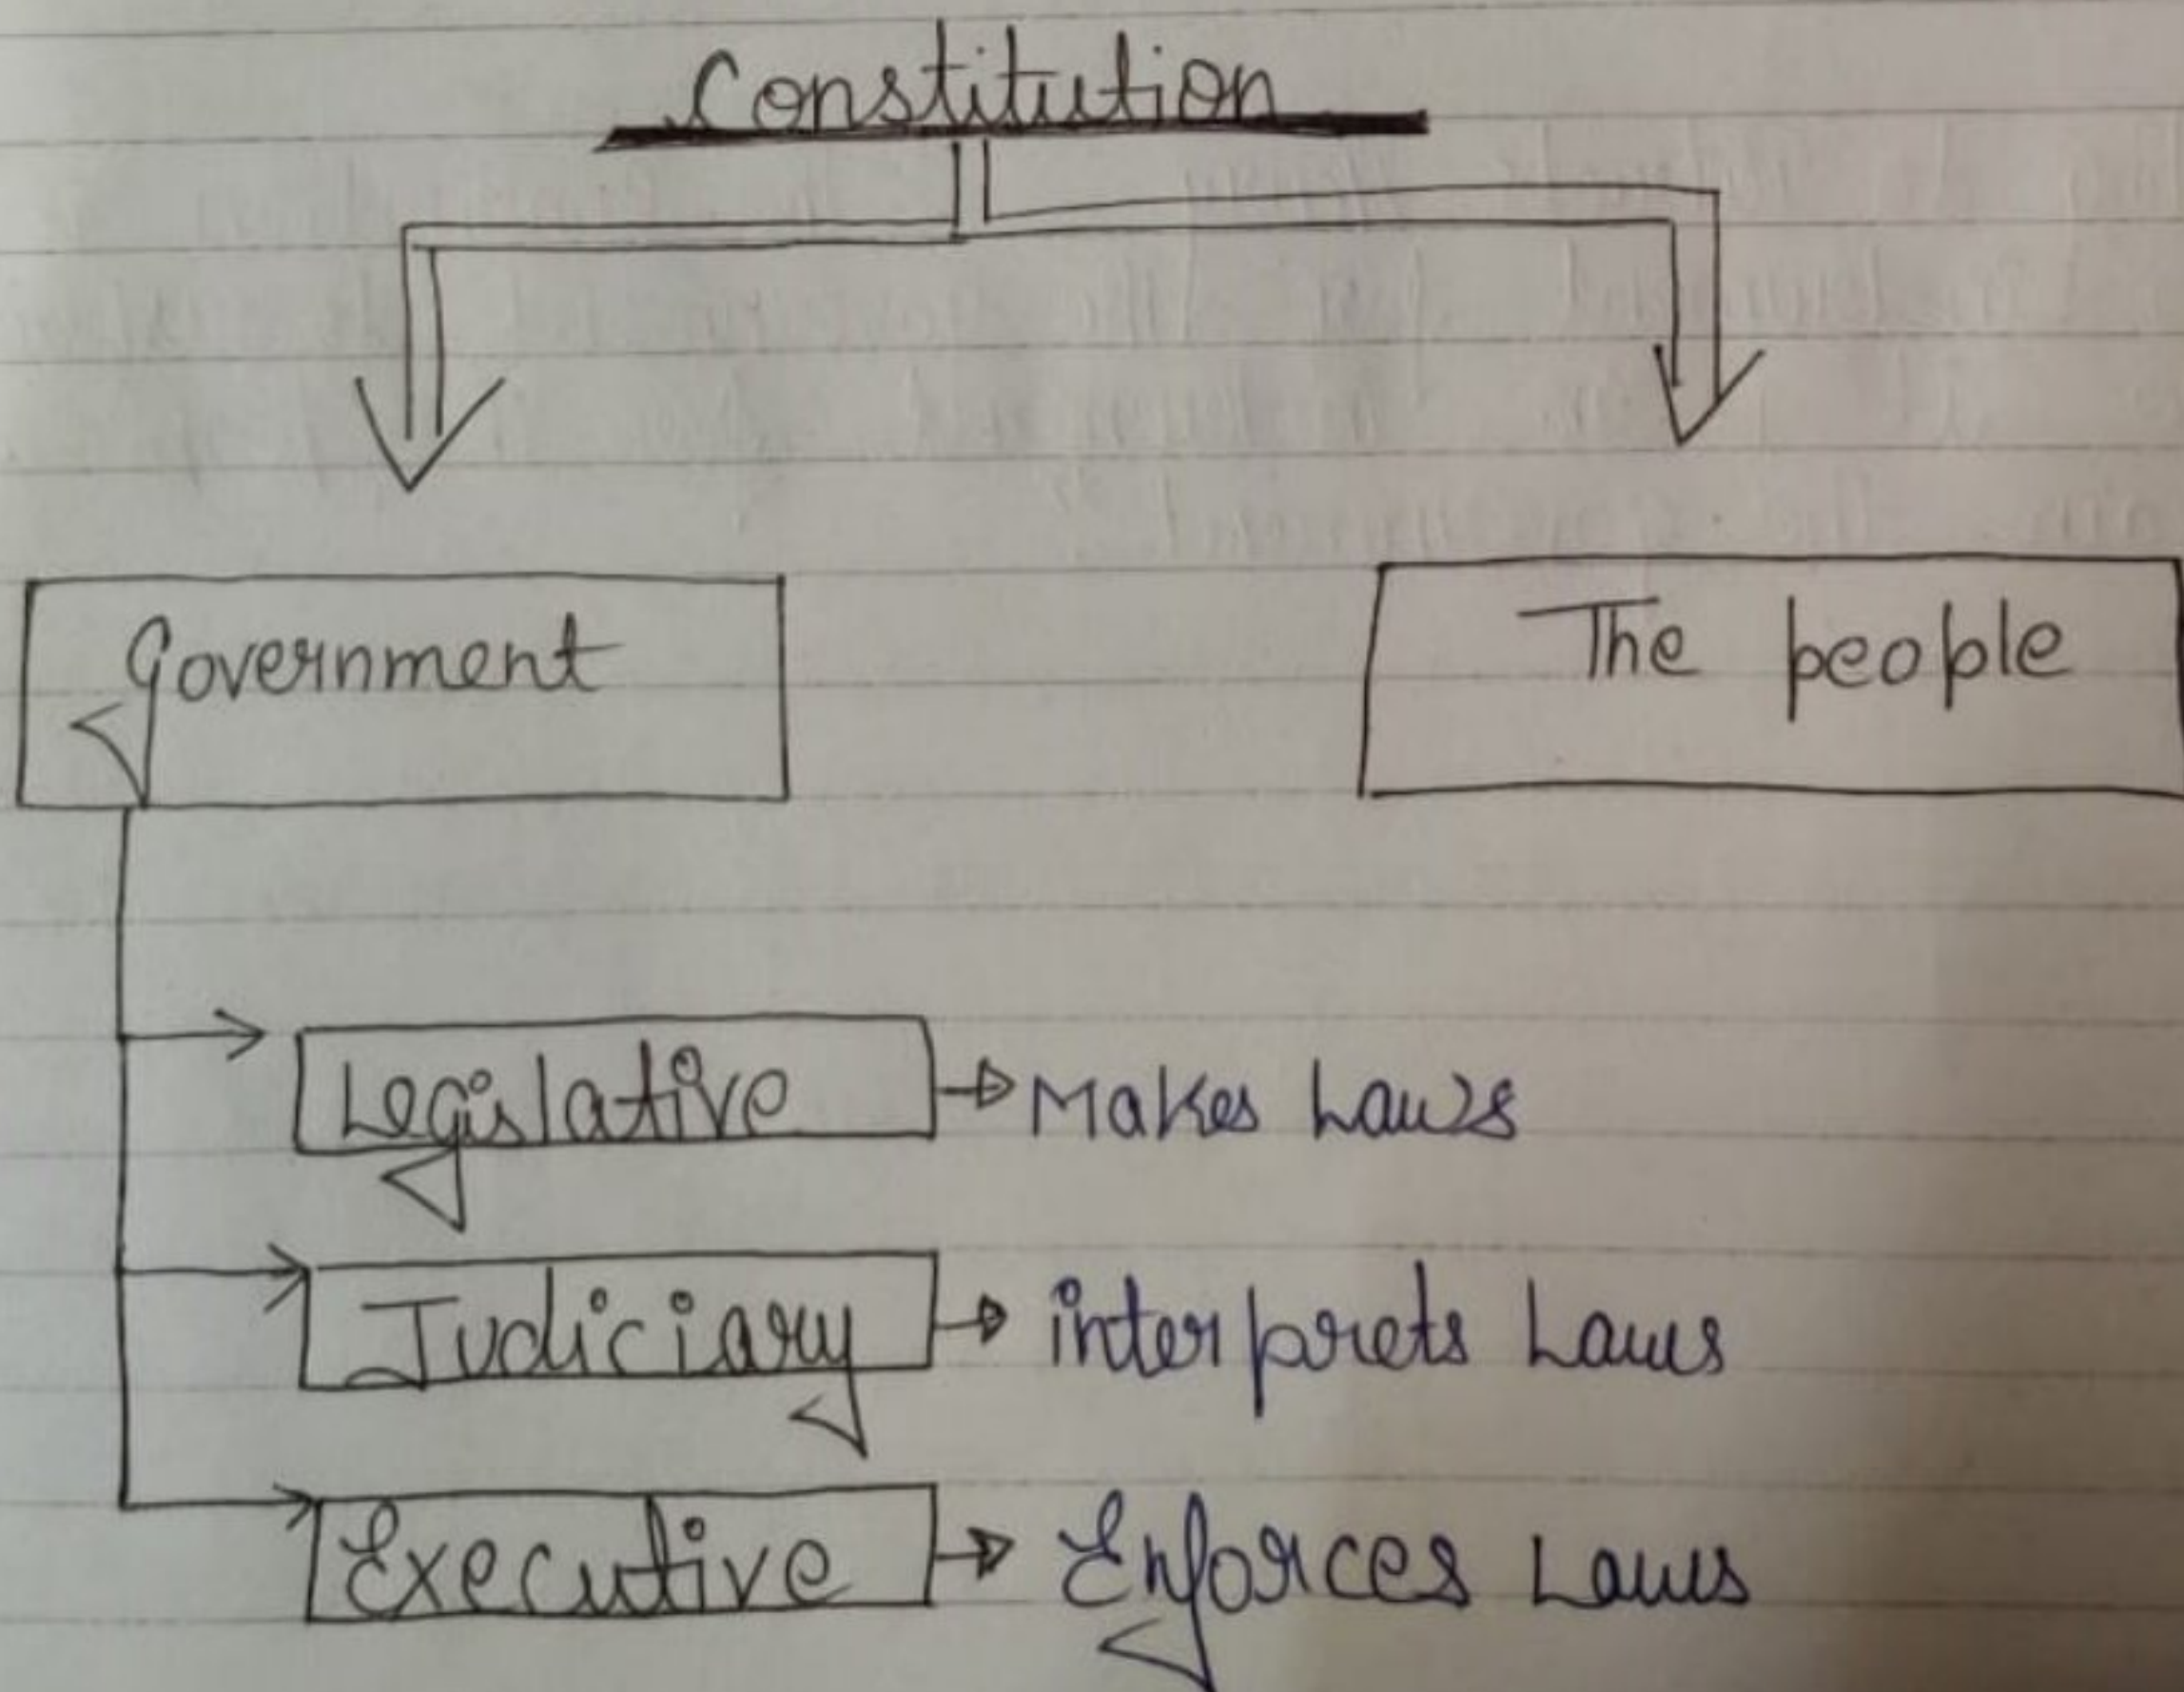 Constitution
Government
The people
Legislative
Makes Laws
Judiciary
interprets Laws
Executive
Enforces Laws